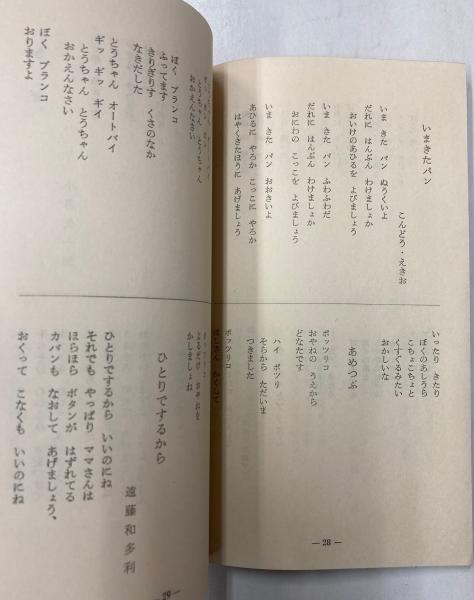 いまきたパン
こんどう・えきお
いま きた パン ぬうくいよ
だれに はんぶん わけましょか
おいけのあひるを よびましょう
いま きた パン ふわふわだ
だれに はんぶん わけましょか
おにわの こっこを よびましょう
いま きた パン おおきいよ
あひるに やろか こっこに やろか
はやくきたほうに あげましょう
いったり きたり
ぼくのあしうら
こちょこちょと
くすぐるみたい
おかしいな
あめつぶ
ポッツリコ
おやねの うえから
どなたです
ハイ ポツリ
そらから ただいま
つきました
ポッツリコ
— 28 —
とうちゃん とうちゃん
おかえんなさい
ぼく ブランコ
ふってます
きりぎりす くさのなか
なきだした
とうちゃん オートバイ
ギッ ギッ ギイ
とうちゃん とうちゃん
おかえんなさい
ぼく ブランコ
おりますよ
かしましょね
ひとりでするから
遠藤和多利
ひとりでするから いいのにね
それでも やっぱり ママさんは
ほらほら ボタンが はずれてる
カバンも なおして あげましょう、
おくって こなくも いいのにね
— 29 —